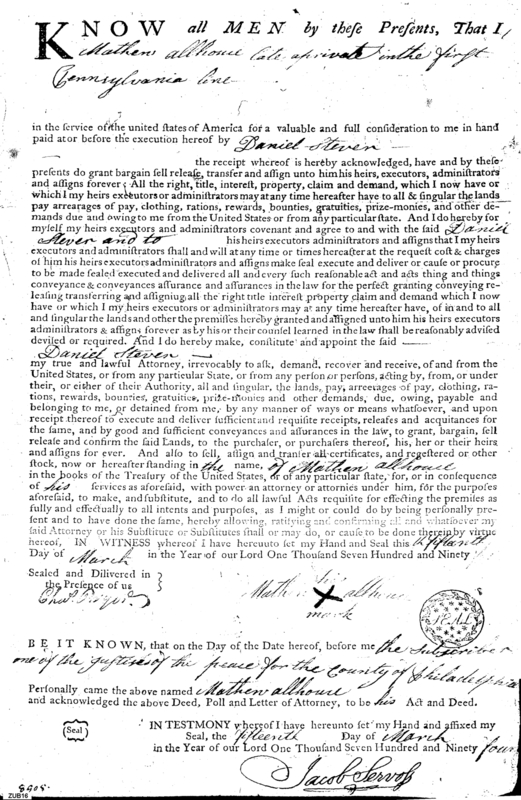 KNOW all MEN by theſe Preſents, That I,
Mathew allhouse late a private in the first
Pennsylvania line
in the ſervice of the united ſtates of America for a valuable and full conſideration to me in hand
paid at or before the execution hereof by Daniel Steven
the receipt whereof is hereby acknowledged, have and by theſe
preſents do grant bargain ſell releaſe, transfer and aſſign unto him his heirs, executors, adminiſtrators
and aſſigns forever; All the right, title, intereſt, property, claim and demand, which I now have or
which I my heirs executors or adminiſtrators may at any time hereafter have to all & ſingular the lands
pay arrearages of pay, clothing, rations, rewards, bounties, gratuities, prize-monies, and other de-
mands due and owing to me from the United States or from any particular ſtate. And I do hereby for
myſelf my heirs executors and adminiſtrators covenant and agree to and with the ſaid Daniel
Steven and to his heirs executors adminiſtrators and aſſigns that I my heirs
executors and adminiſtrators ſhall and will at any time or times hereafter at the requeſt coſt & charges
of him his heirs executors adminiſtrators and aſſigns make ſeal execute and deliver or cauſe or procure
to be made ſealed executed and delivered all and every ſuch reaſonable act and acts thing and things
conveyance & conveyances aſſurance and aſſurances in the law for the perfect granting conveying re-
leaſing transferring and aſſigniug all the right title intereſt property claim and demand which I now
have or which I my heirs executors or adminiſtrators may at any time hereafter have, of in and to all
and ſingular the lands and other the premiſes hereby granted and aſſigned unto him his heirs executors
adminiſtrators & aſſigns forever as by his or their counſel learned in the law ſhall be reaſonably adviſed
deviſed or required. And I do hereby make, conſtitute and appoint the ſaid
Daniel Steven
my true and lawful Attorney, irrevocably to aſk, demand, recover and receive, of and from the
United States, or from any particular State, or from any perſon or perſons, acting by, from, or under
their, or either of their Authority, all and ſingular, the lands, pay, arrearages of pay, clothing, ra-
tions, rewards, bounties, gratuities, prize-monies and other demands, due, owing, payable and
belonging to me, or detained from me, by any manner of ways or means whatſoever, and upon
receipt thereof to execute and deliver ſufficient and requiſite receipts, releaſes and acquitances for
the ſame, and by good and ſufficient conveyances and aſſurances in the law, to grant, bargain, ſell
releaſe and confirm the ſaid Lands, to the purchaſer, or purchaſers thereof, his, her or their heirs
and aſſigns for ever. And alſo to ſell, aſſign and tranſer all certificates, and regeſtered or other
ſtock, now or hereafter ſtanding in the name, of Mathew allhouse
in the books of the Treaſury of the United States, or of any particular ſtate, for, or in conſequence
of his ſervices as aforeſaid, with power an attorney or attornies under him, for the purpoſes
aforeſaid, to make, and ſubſtitute, and to do all lawful Acts requiſite for effecting the premiſes as
fully and effectually to all intents and purpoſes, as I might or could do by being perſonally pre-
ſent and to have done the ſame, hereby allowing, ratifying and confirming all and whatſoever my
ſaid Attorney or his Subſtitute or Subſtitutes ſhall or may do, or cauſe to be done therein by virtue
hereof, IN WITNESS whereof I have hereunto ſet my Hand and Seal this
Day of March in the Year of our Lord One Thouſand Seven Hundred and Ninety
Sealed and Delivered in
the Preſence of us
his
Mathew X allhouse
mark
SEAL
BE IT KNOWN, that on the Day of the Date hereof, before me the Subscriber
one of the justises of the peace for the County of Philadelphia
Perſonally came the above named Mathew allhouse
and acknowledged the above Deed, Poll and Letter of Attorney, to be his Act and Deed.
Seal
IN TESTMONY whereof I have hereunto ſet my Hand and affixed my
Seal, the fifteenth Day of March
in the Year of our Lord One Thouſand Seven Hundred and Ninety four
Jacob Servoſs
ZUB16